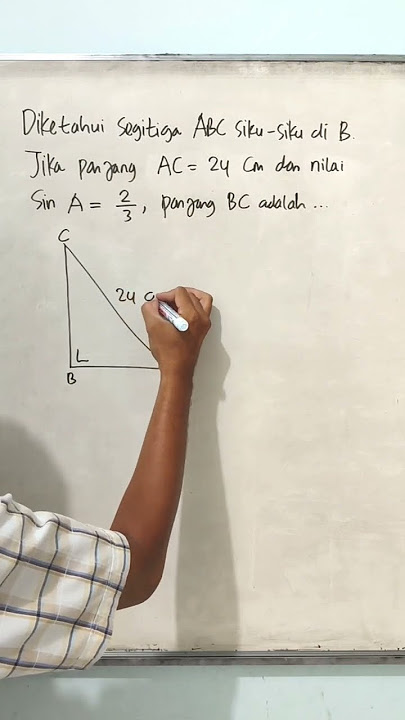 Diketahui segitiga ABC siku-siku di B.
Jika panjang AC = 24 Cm dan nilai
Sin A = 2/3, panjang BC adalah ...
C
24 c
B